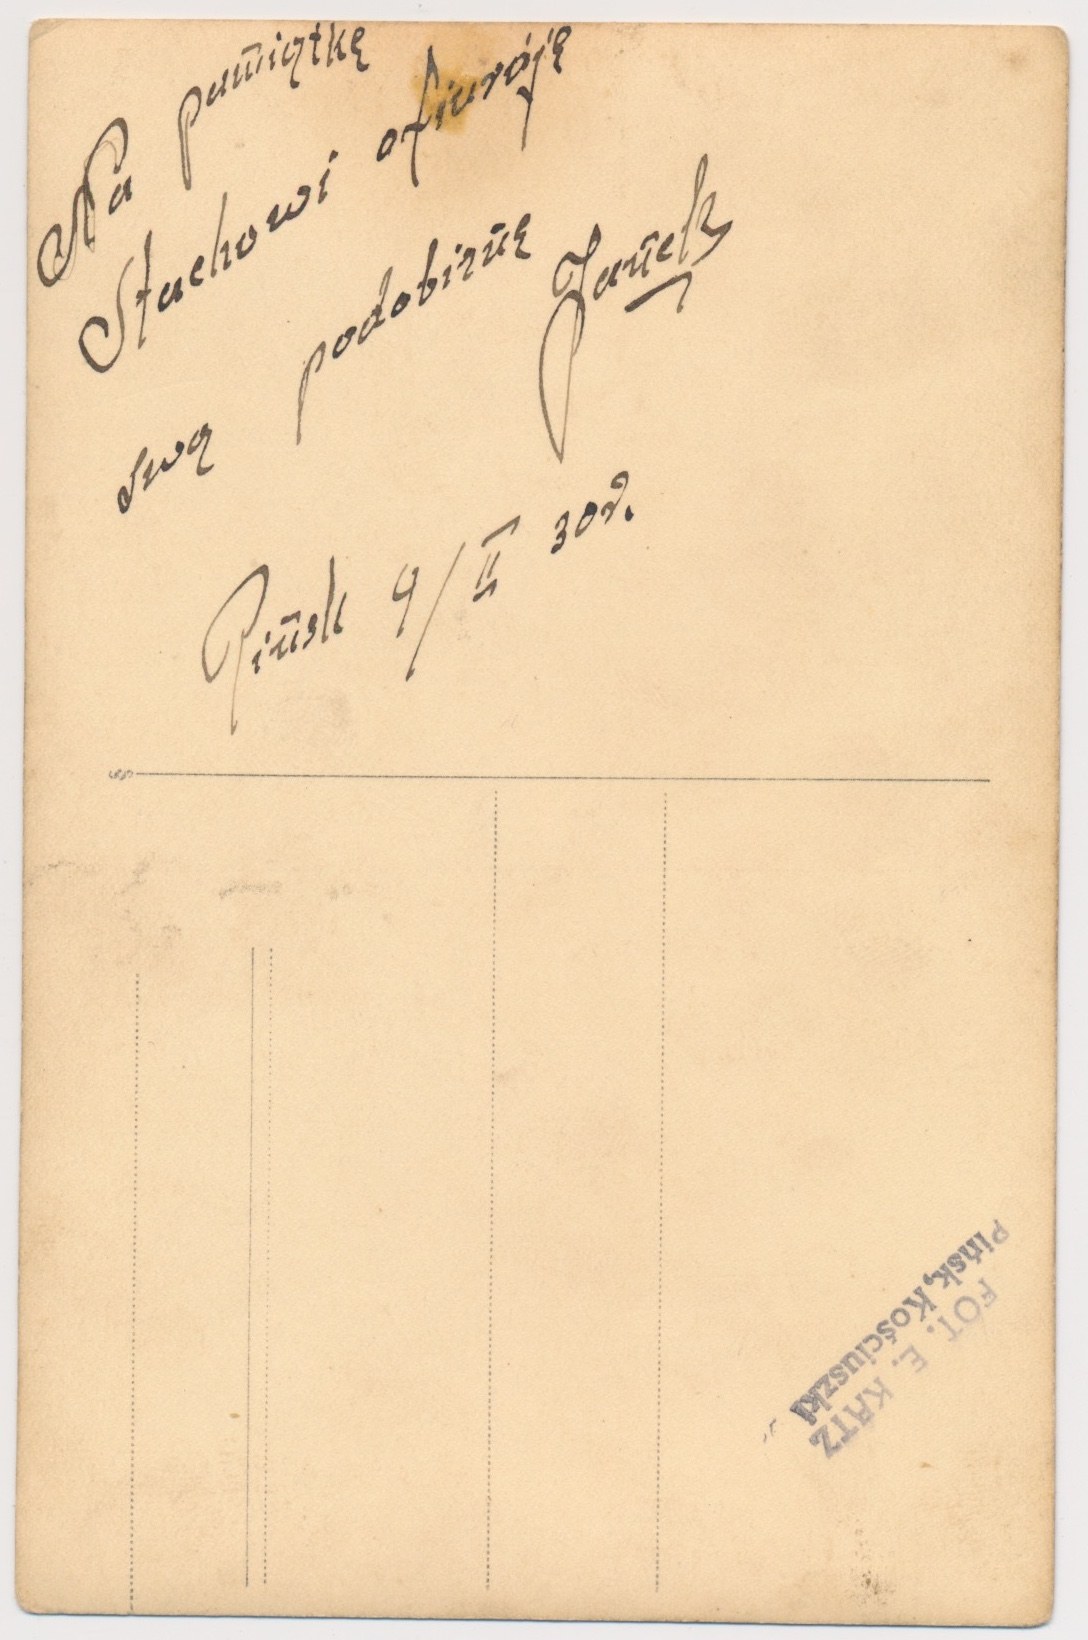 Na pamiątkę
Stachowi ofiaruję
swą podobiznę
Janek
Pińsk 9/II 30r.
FOT. E. KATZ
Pińsk, Kościuszki